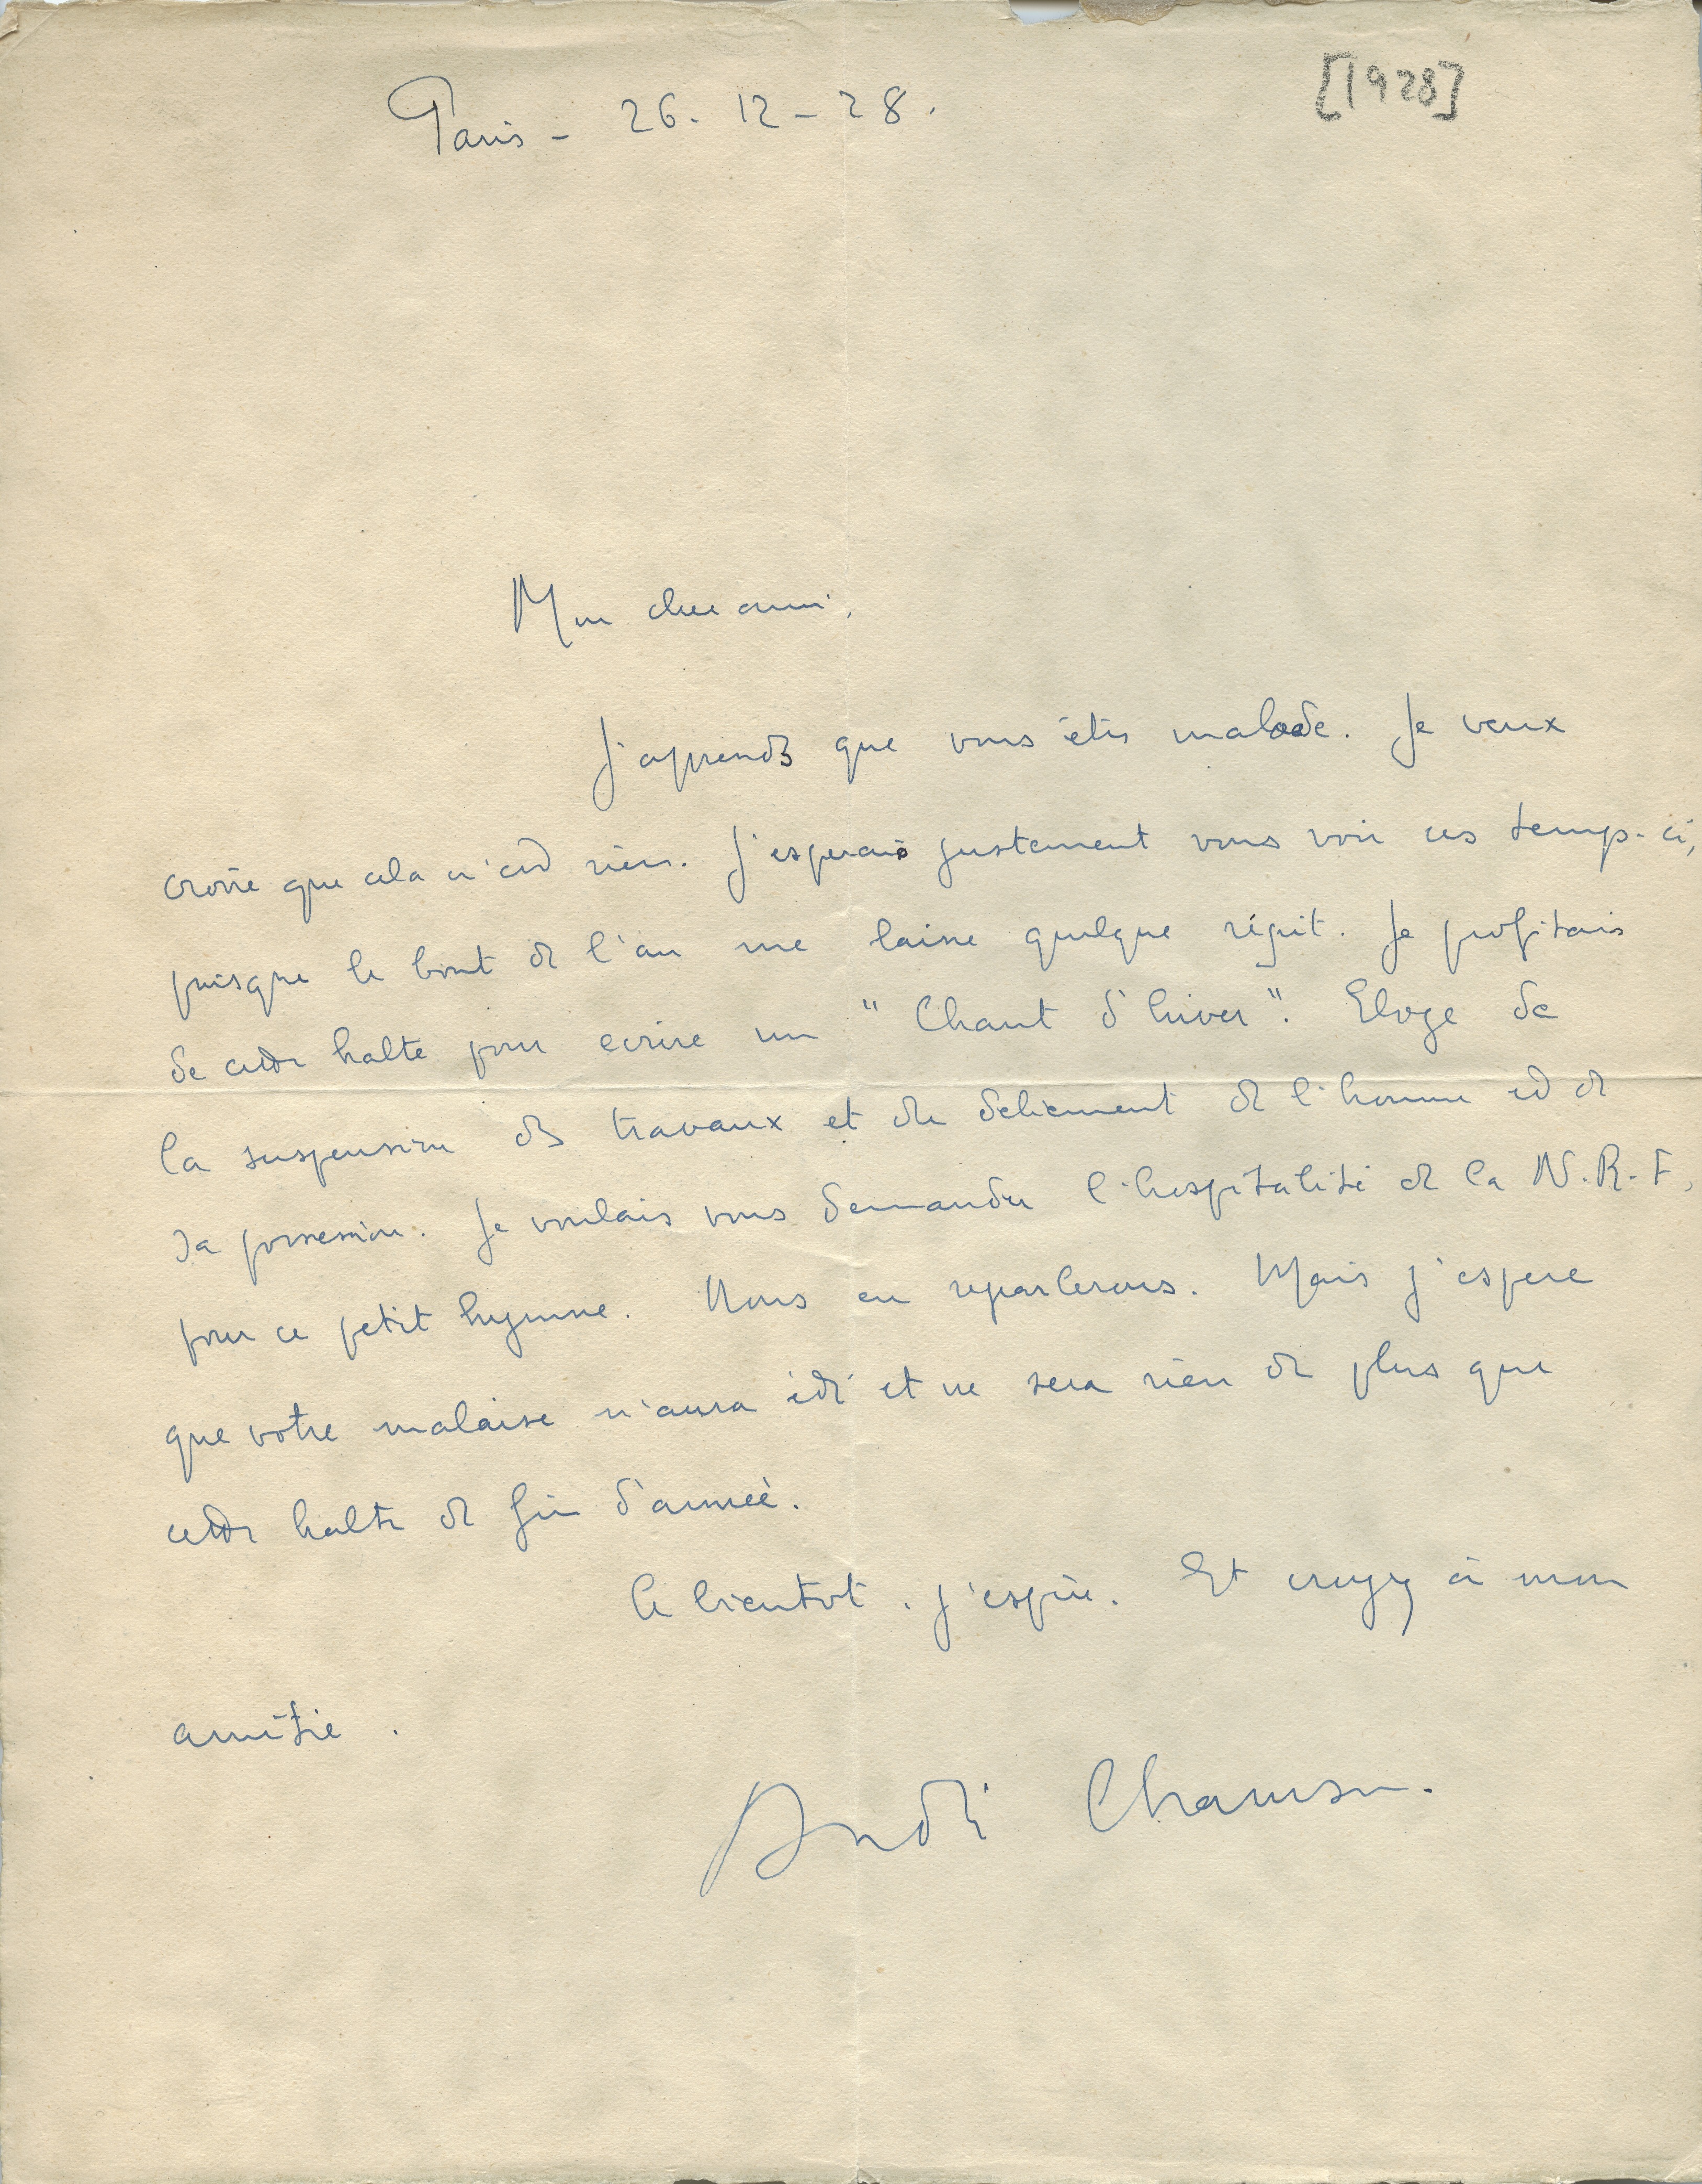 Paris - 26. 12 - 28.
[1928]
Mon cher ami,
J'apprends que vous êtes malade. Je veux
croire que cela n'est rien. J'esperais justement vous voir ces temps-ci,
puisque le bout de l'an me laisse quelque répit. Je profitais
de cette halte pour ecrire un "Chant d'hiver". Eloge de
la suspension des travaux et du deliement de l'homme et de
sa possession. Je voulais vous demander l'hospitalité de la N.R.F,
pour ce petit hymne. Nous en reparlerons. Mais j'espere
que votre malaise n'aura été et ne sera rien de plus que
cette halte de fin d'année.
A bientot. j'espère. Et croyez à mon
amitie.
André Chamson.